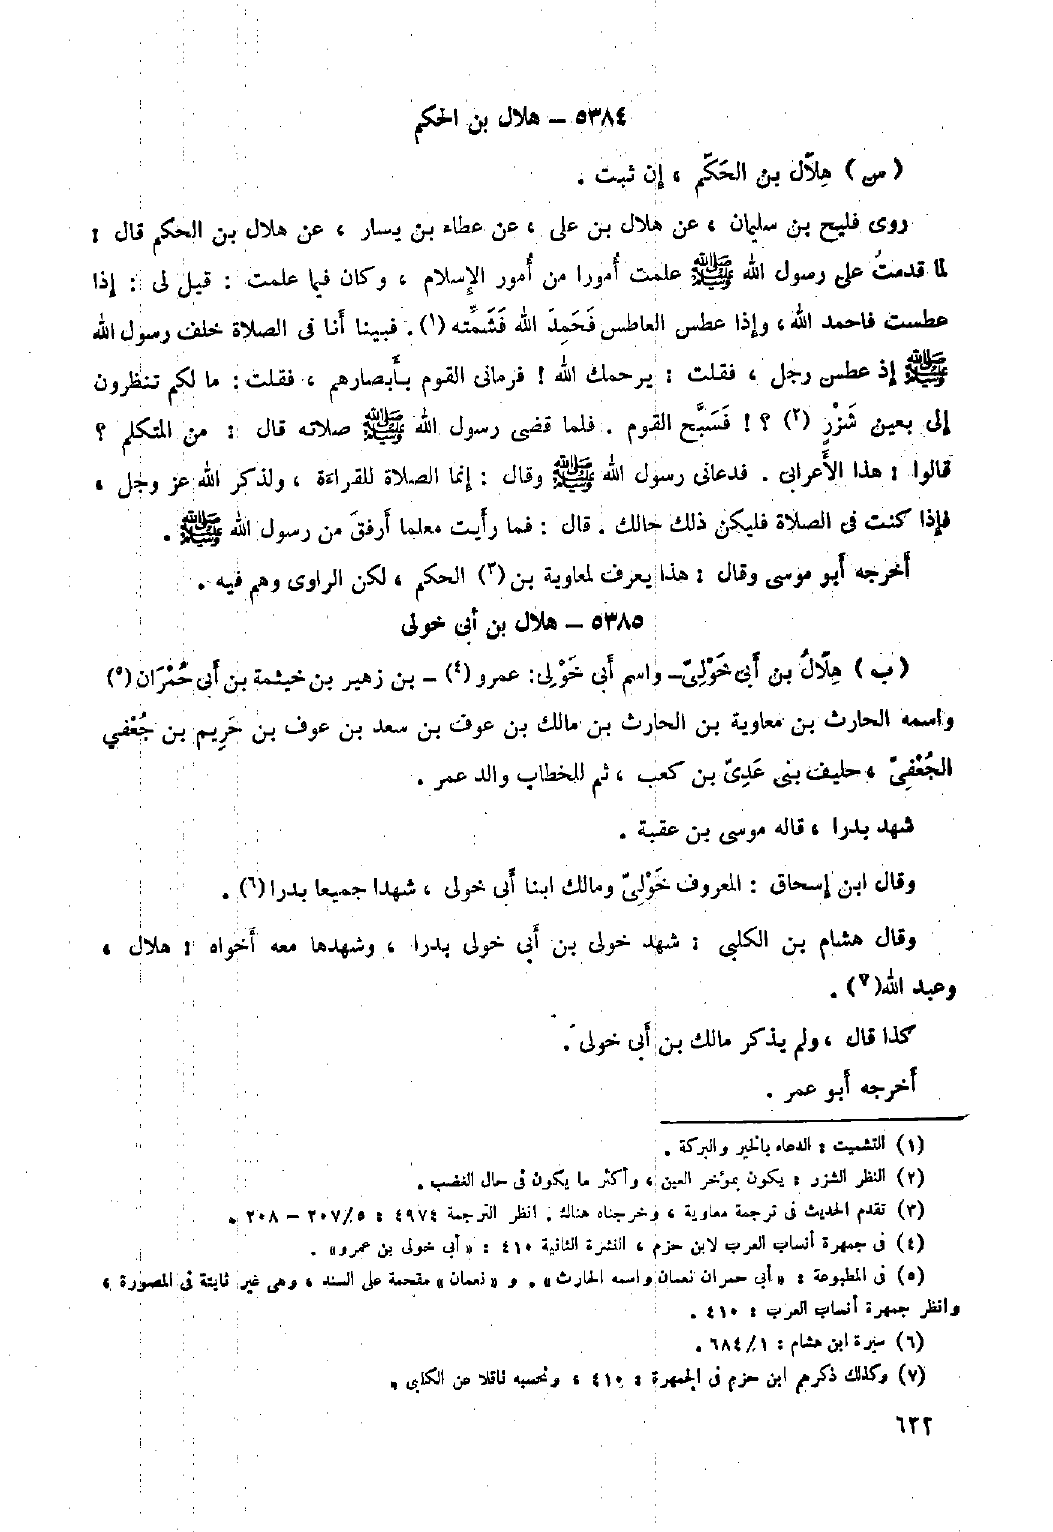 ٥٣٨٤ – هلال بن الحكم
( س ) هِلَال بن الحَكَم ، إن ثبت .
روى فليح بن سليمان ، عن هلال بن على ، عن عطاء بن يسار ، عن هلال بن الحكم قال :
لما قدمتُ على رسول الله ﷺ علمت أُمورا من أُمور الإسلام ، وكان فيما علمت : قيل لى : إذا
عطست فاحمد الله ، وإذا عطس العاطس فَحَمِدَ الله فَشَمِّته (١) . فبينا أنا فى الصلاة خلف رسول الله
ﷺ إذ عطس رجل ، فقلت : يرحمك الله ! فرمانى القوم بأَبصارهم ، فقلت : ما لكم تنظرون
إلى بعين شَزْرٍ (٢) ؟ ! فَسَبَّح القوم . فلما قضى رسول الله ﷺ صلاته قال : من المتكلم ؟
قالوا : هذا الأَعرابى . فدعانى رسول الله ﷺ وقال : إنما الصلاة للقراءة ، ولذكر الله عز وجل ،
فإذا كنت فى الصلاة فليكن ذلك حالك . قال : فما رأَيت معلما أَرفقَ من رسول الله ﷺ .
أَخرجه أَبو موسى وقال : هذا يعرف لمعاوية بن (٣) الحكم ، لكن الراوى وهم فيه .
٥٣٨٥ – هلال بن أبى خولى
( ب ) هِلَالُ بن أَبى خَوْلِىّ – واسم أَبى خَوْلى : عمرو (٤) – بن زهير بن خيثمة بن أَبى حُمْرَان (٥)
واسمه الحارث بن معاوية بن الحارث بن مالك بن عوف بن سعد بن عوف بن حَرِيم بن جُعْفي
الجُعْفِىّ ، حليف بنى عَدِىّ بن كعب ، ثم للخطاب والد عمر .
شهد بدرا ، قاله موسى بن عقبة .
وقال ابن إسحاق : المعروف خَوْلِىّ ومالك ابنا أَبى خولى ، شهدا جميعا بدرا (٦) .
وقال هشام بن الكلبي : شهد خولى بن أَبى خولى بدرا ، وشهدها معه أَخواه : هلال ،
وعبد الله (٧) .
كذا قال ، ولم يذكر مالك بن أَبى خولى .
أَخرجه أَبو عمر .
(١) التشميت : الدعاء بالخير والبركة .
(٢) النظر الشزر : يكون بمؤخر العين ، وأكثر ما يكون فى حال الغضب .
(٣) تقدم الحديث فى ترجمة معاوية ، وخرجناه هناك . انظر الترجمة ٤٩٧٤ : ٢٠٧/٥ – ٢٠٨ .
(٤) فى جمهرة أنساب العرب لابن حزم ، النشرة الثانية ٤١٠ : « أبى خولى بن عمرو » .
(٥) فى المطبوعة : « أبى حمران نعمان واسمه الحارث » . و « نعمان » مقحمة على السند ، وهى غير ثابتة فى المصورة ،
وانظر جمهرة أنساب العرب : ٤١٠ .
(٦) سيرة ابن هشام : ٦٨٤/١ .
(٧) وكذلك ذكرهم ابن حزم فى الجمهرة : ٤١٠ ، ونحسبه ناقلا عن الكلبى .
٦٢٢